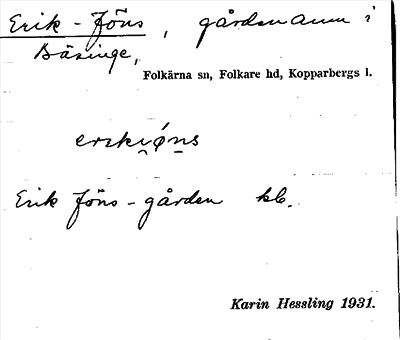 Erik-Jöns, gårdsnamn i
Bäsinge,
Folkärna sn, Folkare hd, Kopparbergs l.
Erik Jöns-gården kb.
Karin Hessling 1931.